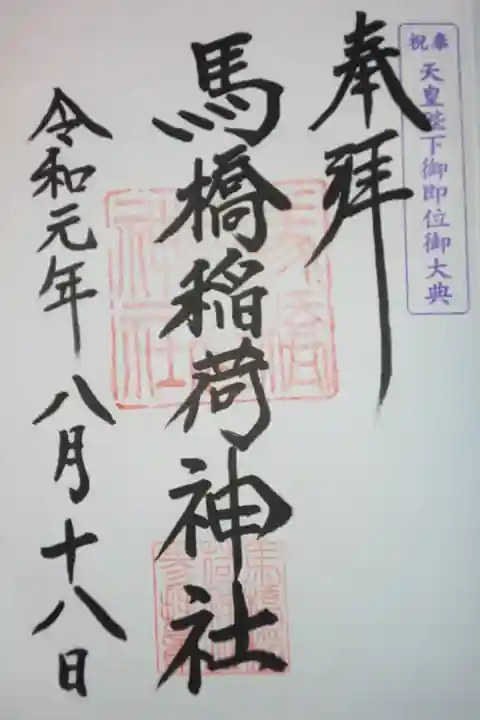 奉祝
天皇陛下御即位御大典
奉拝
馬橋稲荷神社
令和元年八月十八日
馬橋
神社